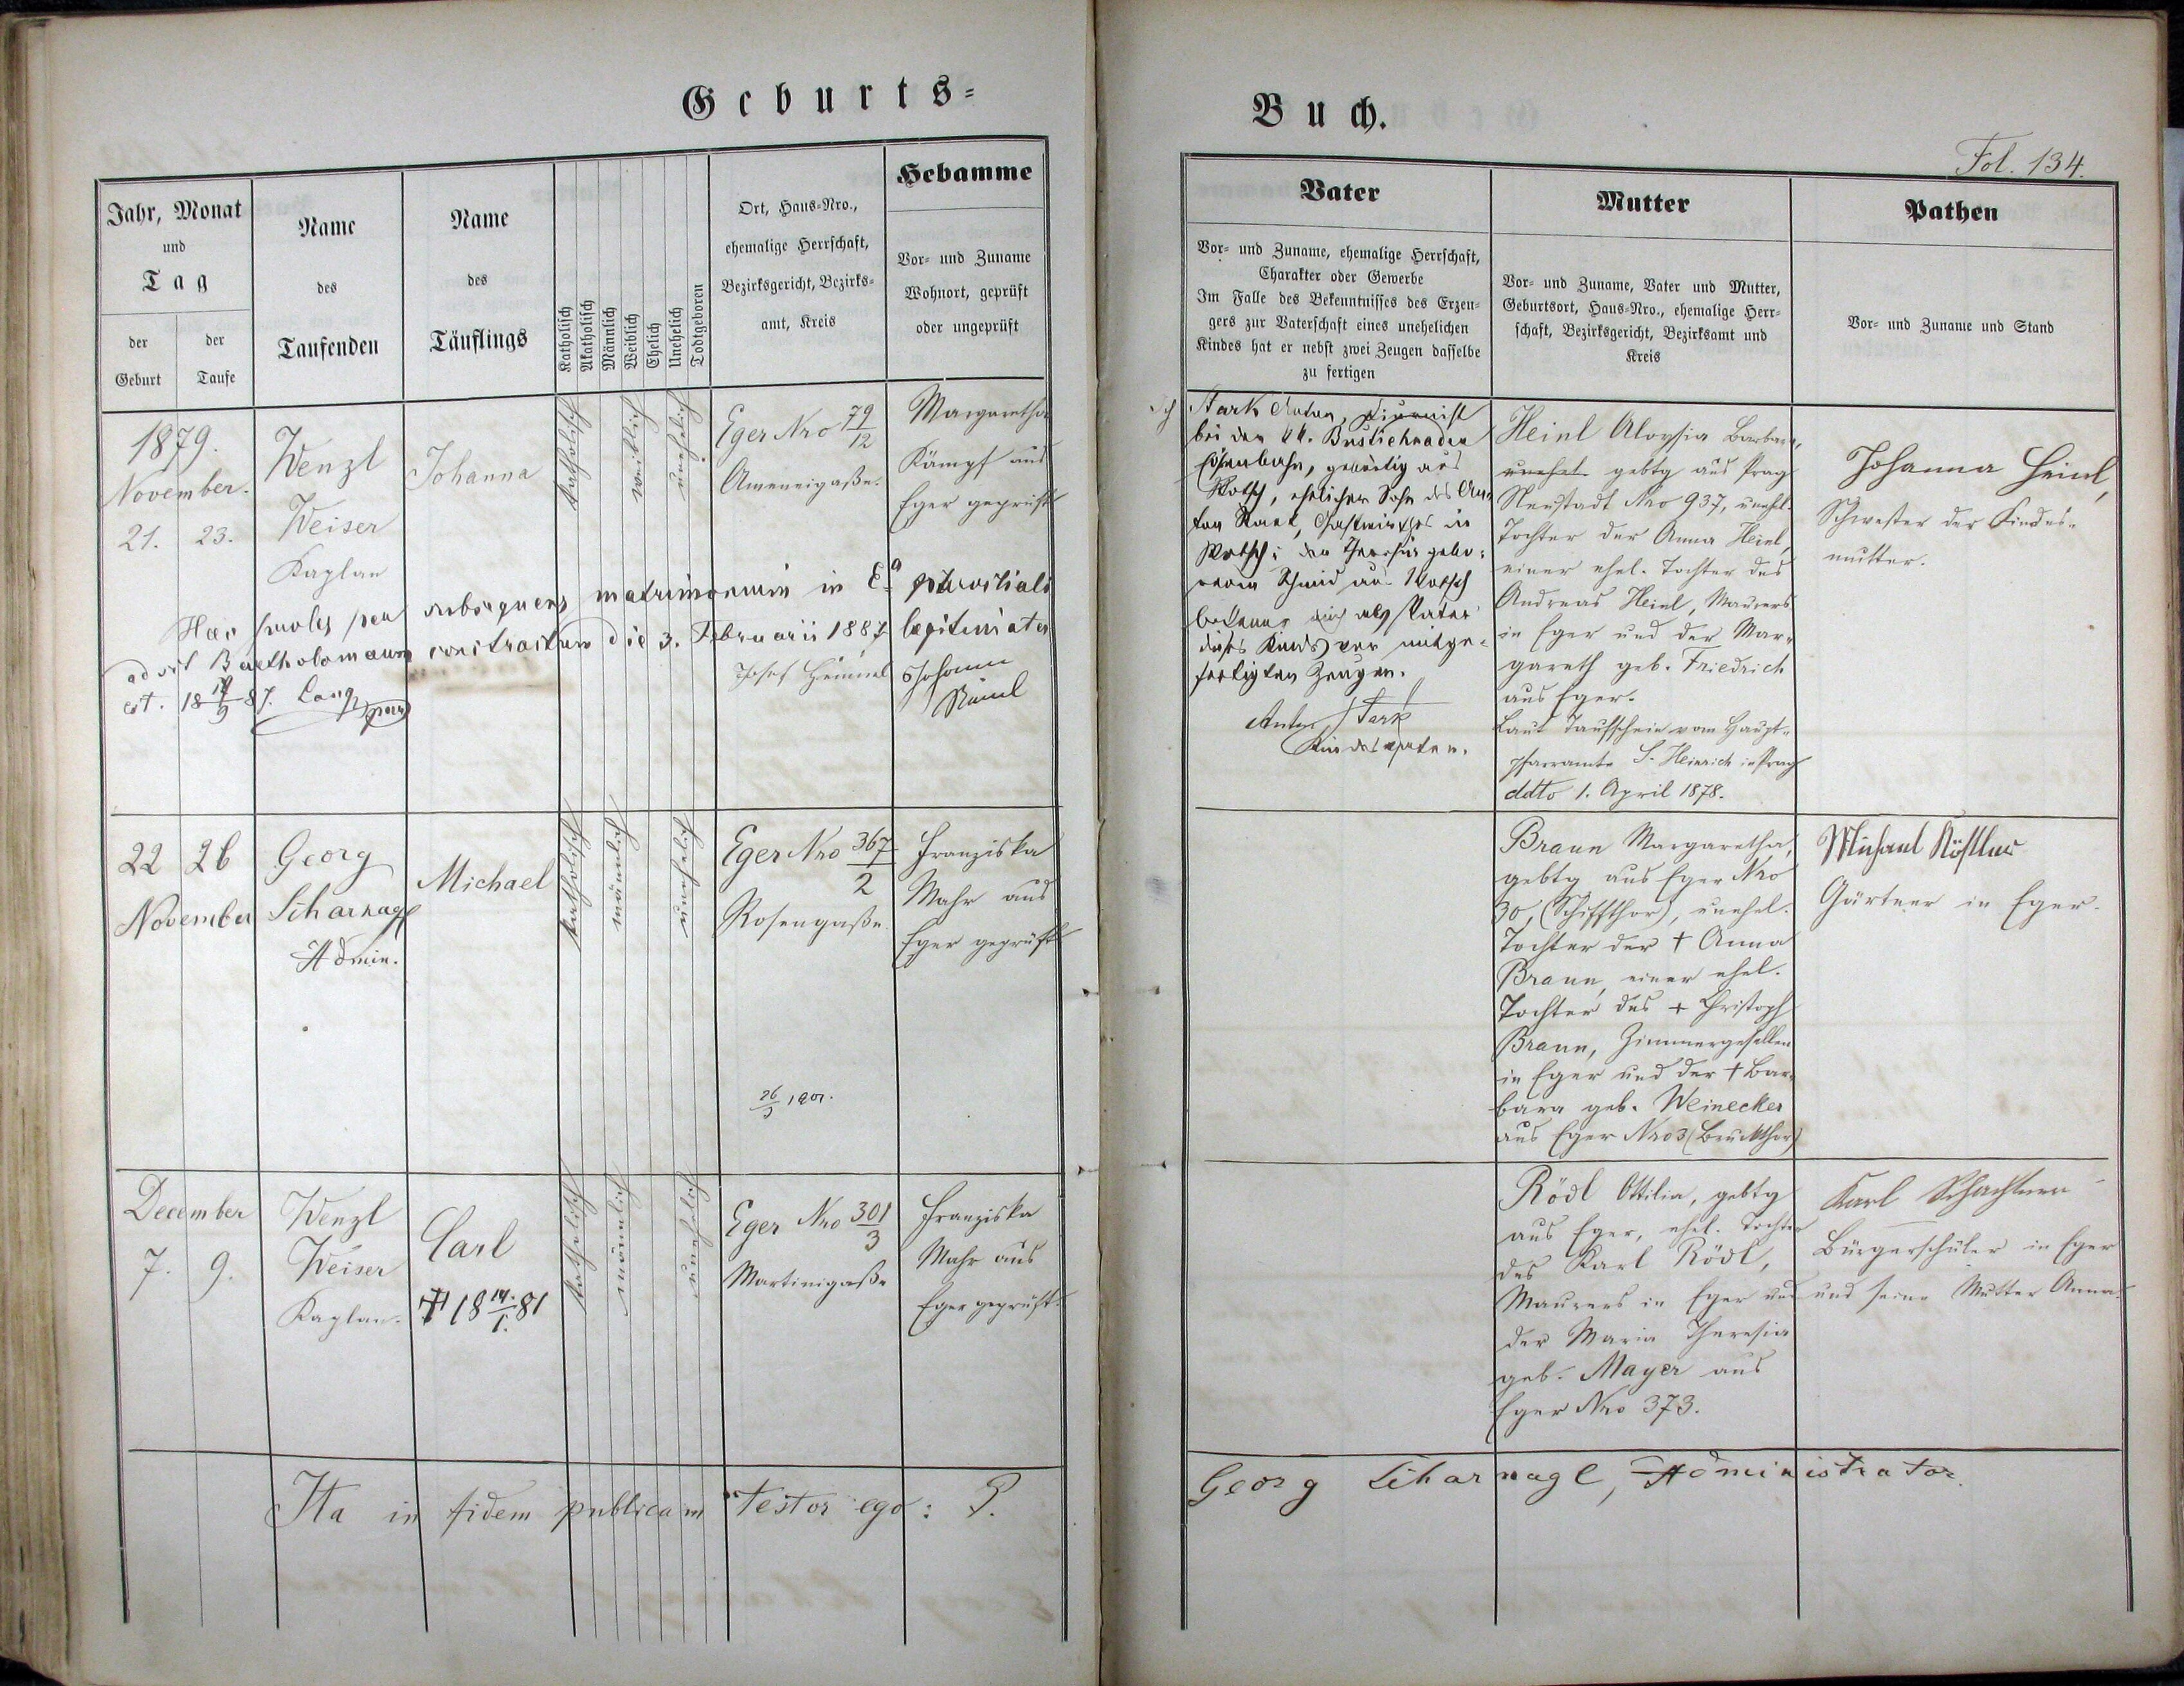 Geburts=
Jahr, Monat
und
Tag
der
Geburt
der
Taufe
Name
des
Taufenden
Name
des
Täuflings
Katholisch
Akatholisch
Männlich
Weiblich
Ehelich
Unehelich
Todtgeboren
Ort, Haus=Nro.,
ehemalige Herrschaft,
Bezirksgericht, Bezirks=
amt, Kreis
Hebamme
Vor= und Zuname
Wohnort, geprüft
oder ungeprüft
1879.
November.
21. 23.
Wenzl
Weiser
Kaplan
Johanna
katholisch
weiblich
unehelich
Eger Nro 79/12
Ameneigaße.
Margaretha
Kämpf aus
Eger geprüft
Haec proles per subsequens matrimonium in Ea parochiali
ad st Bartholomaeum contractum die 3. Februarii 1887 legitimata
est. 18 87.
Josef Heinl
Johann
22 26
November
Georg
Scharnagl
Admin.
Michael
katholisch
männlich
unehelich
Eger Nro 367/2
Rosengaße
Franziska
Mahr aus
Eger geprüft
December
7. 9.
Wenzl
Weiser
Kaplan.
Carl
† 18 14./1. 81
katholisch
männlich
unehelich
Eger Nro 301/3
Martinigaße
Franziska
Mahr aus
Eger geprüft.
Ita in fidem publicam testor ego: P.
Buch.
Fol. 134.
Vater
Vor= und Zuname, ehemalige Herrschaft,
Charakter oder Gewerbe
Im Falle des Bekenntnisses des Erzeu=
gers zur Vaterschaft eines unehelichen
Kindes hat er nebst zwei Zeugen dasselbe
zu fertigen
Mutter
Vor= und Zuname, Vater und Mutter,
Geburtsort, Haus=Nro., ehemalige Herr=
schaft, Bezirksgericht, Bezirksamt und
Kreis
Pathen
Vor= und Zuname und Stand
Ich Stark Anton, Diurnist
bei der kk. Buschtiehrader
Eisenbahn, gebürtig aus
Wotsch, ehelicher Sohn des An=
ton Stark, Gastwirthes in
Wotsch u. der Theresia gebo=
renen Schmid aus Wotsch
bekenne mich als Vater
dieses Kindes vor mitge=
fertigten Zeugen.
Anton Stark
Kindesvater.
Heinl Aloysia Barbara,
unehel. gebtg aus Prag
Neustadt Nro 937, unehel.
Tochter der Anna Heinl,
einer ehel. Tochter des
Andreas Heinl, Maurers
in Eger und der Mar=
gareth geb. Friedrich
aus Eger.
Laut Taufschein vom Haupt=
pfarramte S. Heinrich in Prag
ddto 1. April 1878.
Johanna Heinl,
Schwester der Kindes=
mutter.
Braun Margaretha,
gebtg aus Eger Nro
30, (Schiffthor), unehel.
Tochter der † Anna
Braun, einer ehel.
Tochter des † Christoph
Braun, Zimmergesellen
in Eger und der † Bar=
bara geb. Weinecker
aus Eger Nro 3 (Bruckthor)
Michael Köstler
Gärtner in Eger.
Rödl Ottilia, gebtg
aus Eger, ehel. Tochter
des Karl Rödl,
Maurers in Eger und
der Maria Theresia
geb. Mayer aus
Eger Nro 373.
Karl Schachtner
Bürgerschüler in Eger
und seine Mutter Anna.
Georg Scharnagl, Administrator.